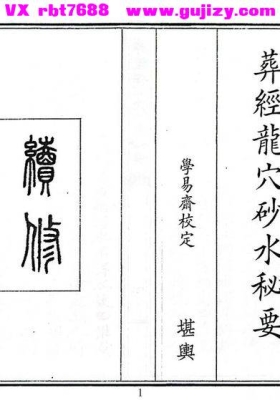 VX rbt7688  www.gujizy.com
葬經龍穴砂水秘要
學易齋校定 堪輿
續修
1